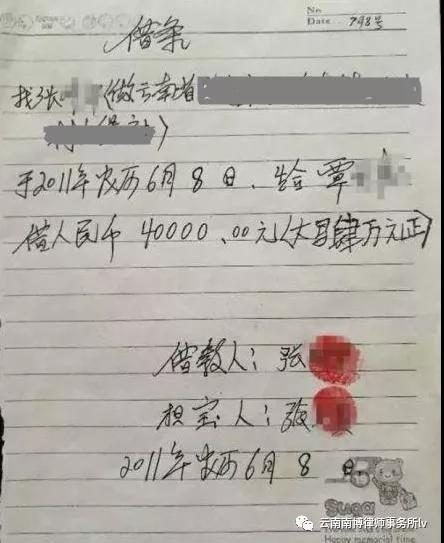 No
Date 798号
借条
我张 (做云南省
)
于2011年农历6月8日、 覃
借人民币 40000.00元(大写肆万元正)
借款人:张
担宝人:张
2011年农历6月8日
Suga
Happy memorial time
云南南博律师事务所lv